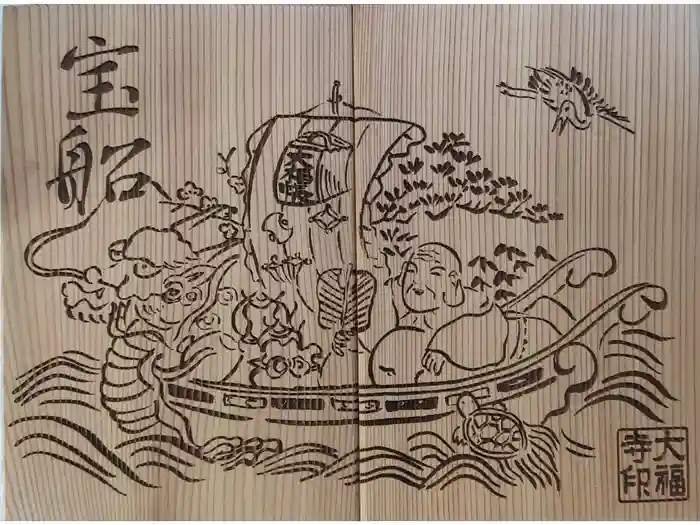 宝船
大福帳
大福
寺印